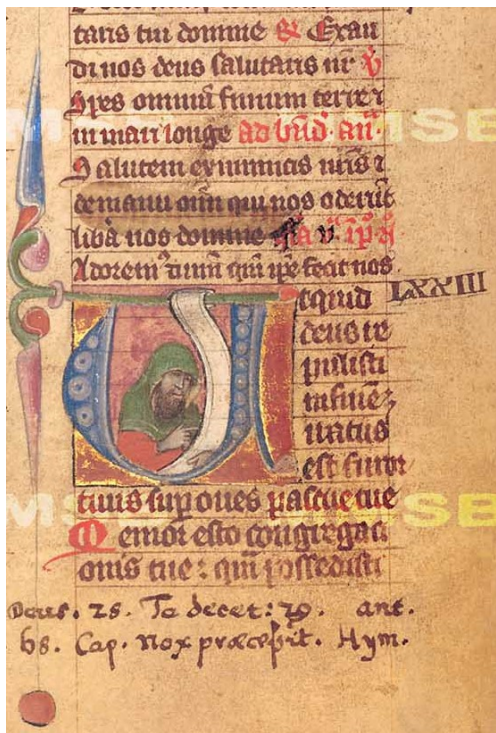 taris tui domine & Exau
di nos deus salutaris nr̄ v̄
Spes omniū finium terre ⁊
in mari longe ad bn̄d. an̄.
Salutem ex inimicis nr̄is ⁊
de manu oīm qui nos oderūt
libā nos domine v. ip̄
Adorem⁹ dnm̄ qm̄ ip̄e fecit nos.
Utquid LXXIII
deus re
pulisti
in finē
iratus
est furor
tuus sup oues pascue tue
Memor esto congregaci
onis tue: qm̄ possedisti
Deus. 28. Te decet: 29. ant.
68. Cap. Nox præcessit. Hym.